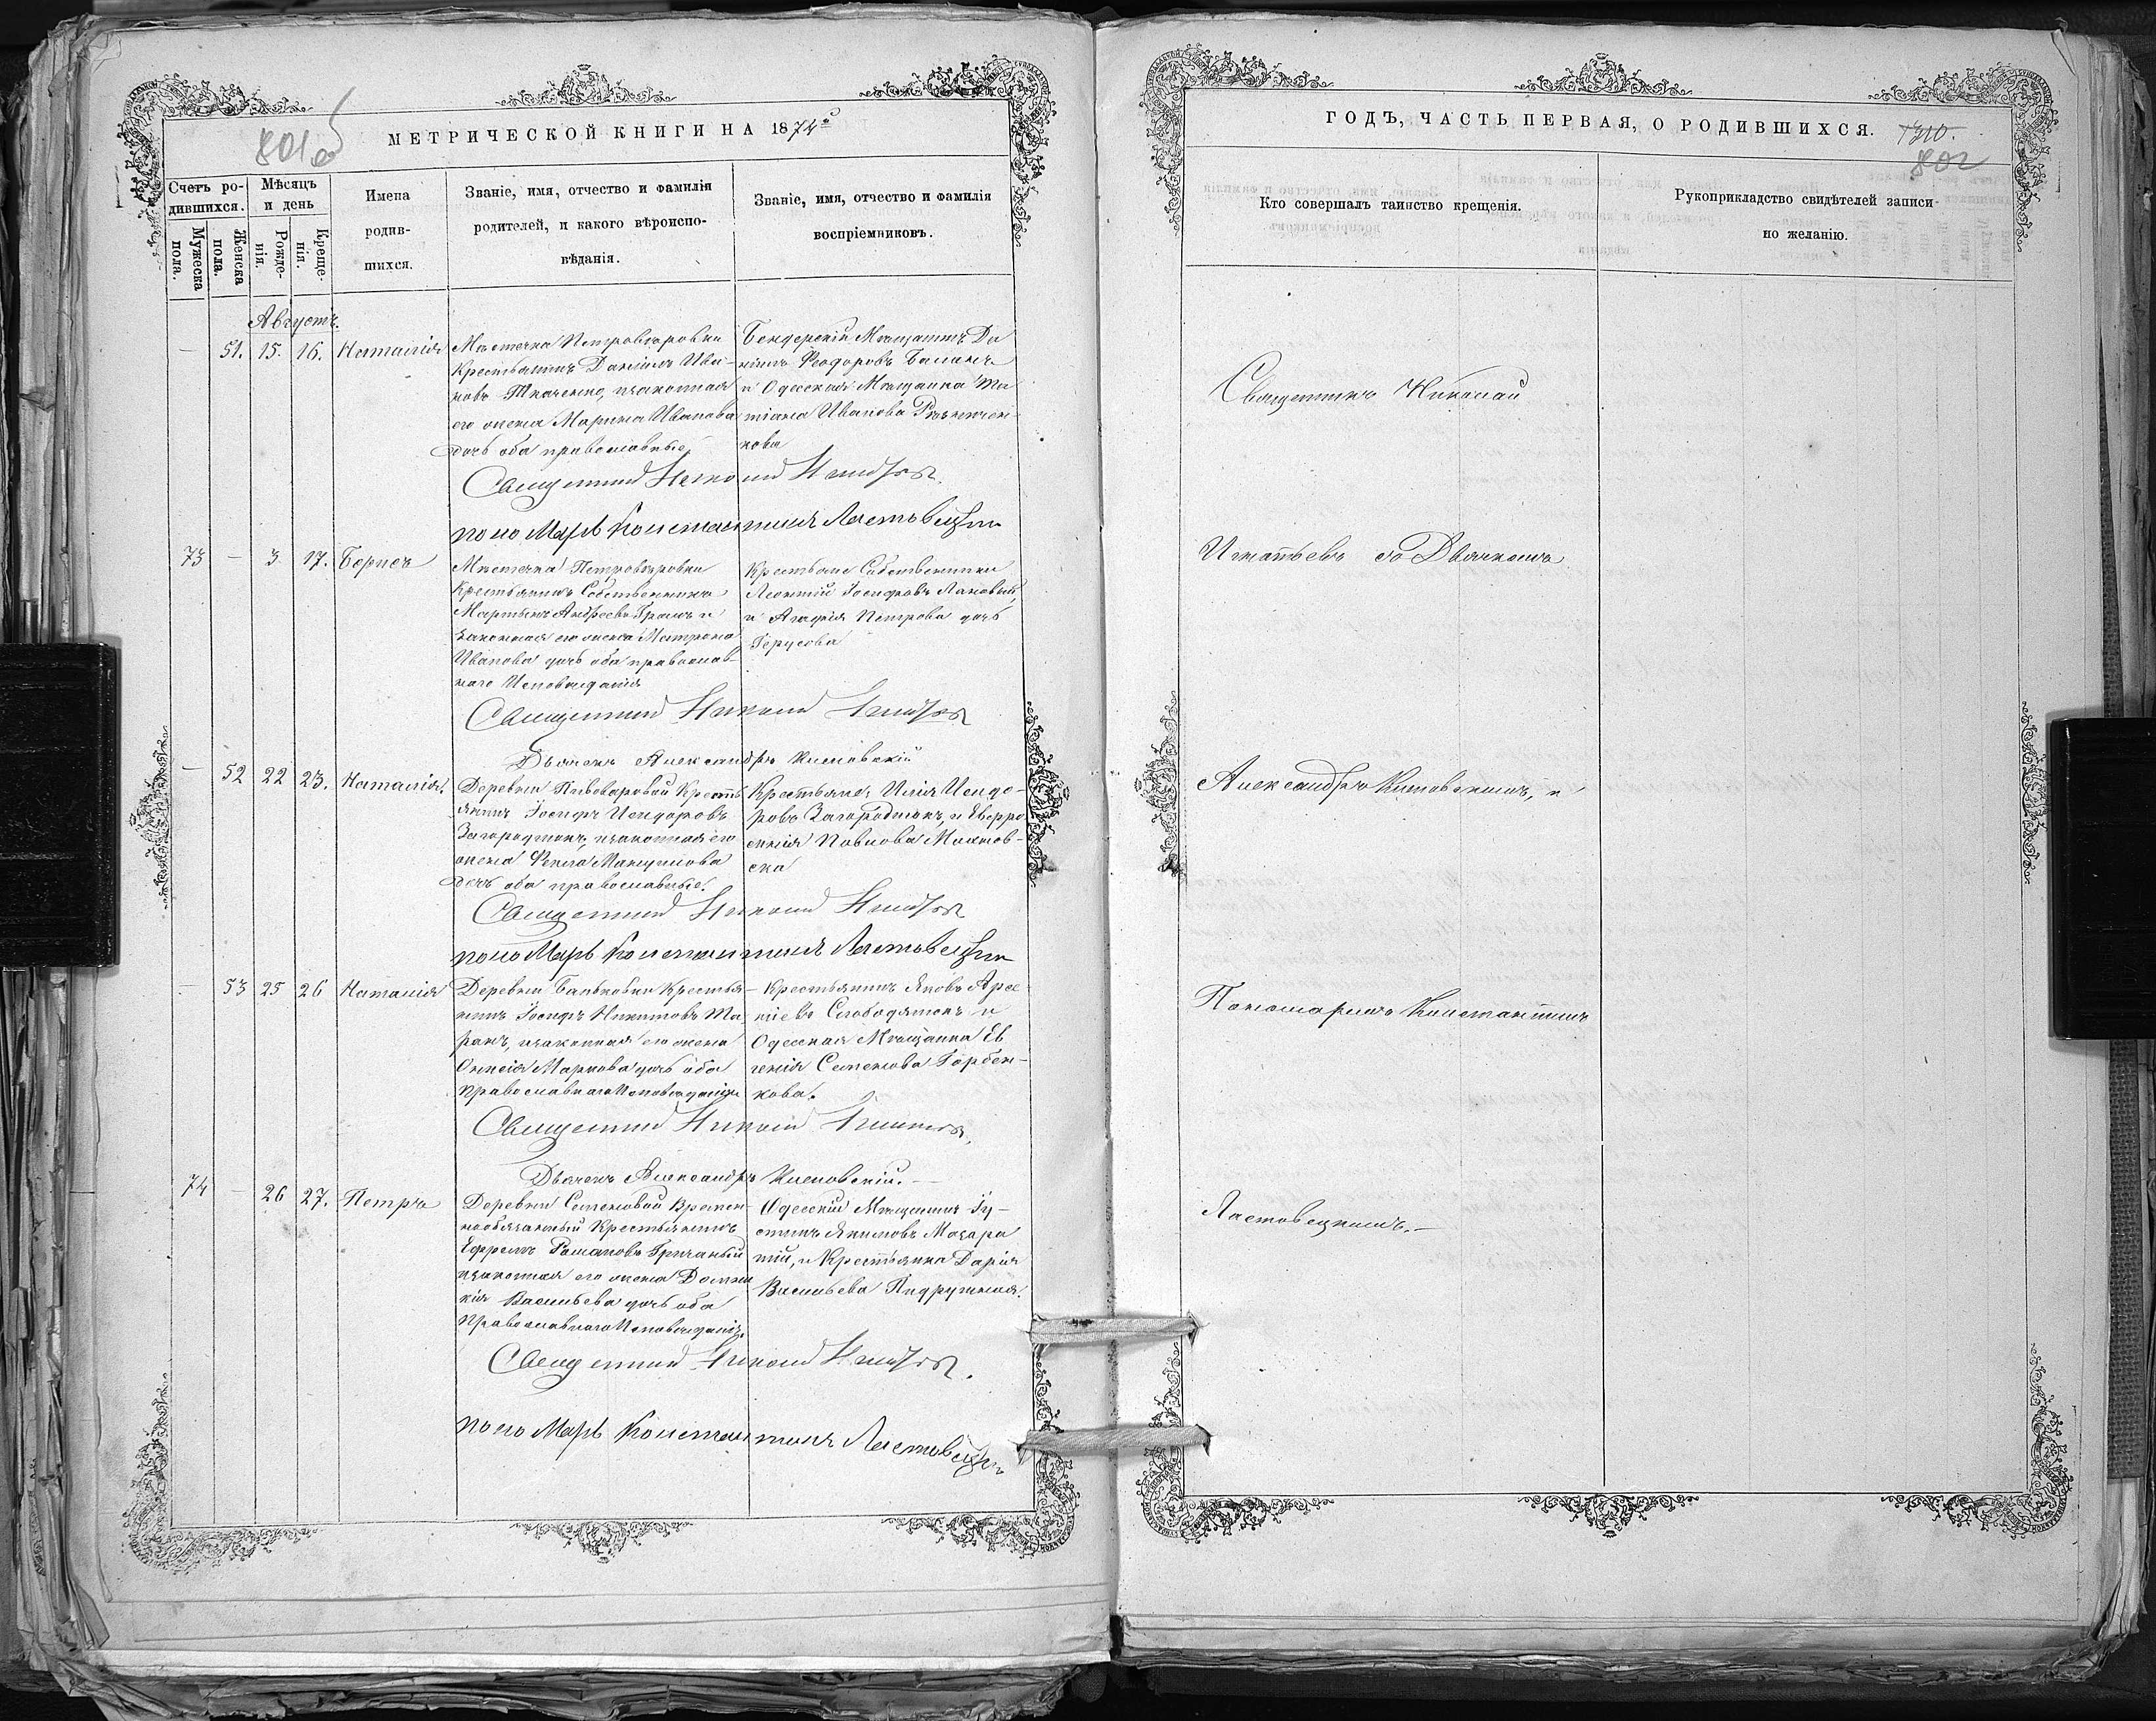 801 об
МЕТРИЧЕСКОЙ КНИГИ НА 1874й
Счетъ родившихся.
Мужеска пола.
Женска пола.
Мѣсяцъ и день
Рожденія.
Крещенія.
Имена родившихся.
Званіе, имя, отчество и фамилія
родителей, и какого вѣроиспо-
вѣданія.
Званіе, имя, отчество и фамилія
воспріемниковъ.
Августъ.
— 51. 15. 16. Наталія
Мѣстечка Петровѣровки
Крестьянинъ Даніилъ Ива-
новъ Ткаченко, и законная
его жена Марина Иванова
дочь оба православные
Бендерскій Мѣщанинъ Да
ніилъ Феодоровъ Баланъ
и Одесская Мѣщанка Та
тіана Иванова
кова
Священникъ Николай Игнатьевъ
поно Марь Константинъ Ластовецкій
73 — 3 17. Борисъ
Мѣстечка Петровѣровки
Крестьянинъ Собственникъ
Мартынъ Андреевъ и
законная его жена Матрона
Иванова дочь оба православ-
наго Исповѣданія
Крестьяне Собственники
Леонтій Іосифовъ
и Агафія Петрова дочь
Герусова
Священникъ Николай Игнатьевъ
Дьячекъ Александръ Китовскій
— 52 22 23. Наталія.
Деревни Пивоваровой Кресть
янинъ Іосифъ Исидоровъ
Загородтокъ, и законная его
жена Фекла Мануилова
дочь оба православные.
Крестьяне, Илія Исидо-
ровъ Загородтокъ, и Ефро
синія Повлова
ска
Священникъ Николай Игнатьевъ
поно Марь Константинъ Ластовецкій
— 53 25 26 Наталія
Деревни Баньковки Крестья-
нинъ Іосифъ Никитовъ Та
ранъ, и законная его жена
Оксенія Маркова дочь оба
Православнаго Исповѣданія
Крестьянинъ Яковъ Арсе
ніевъ Слободянюкъ и
Одесская Мѣщанка Ев
генія Семенова Горбен-
кова.
Священникъ Николай Игнатьевъ
Дьячекъ Александръ Китовскій.
74 — 26 27. Петръ
Деревни Семеновой Времен-
нообязанный Крестьянинъ
Ефремъ Романовъ Гричаный
и законная его жена Домни
кія Васильева дочь оба
Православнаго Исповѣданія.
Одесскій Мѣщанинъ Іу-
стинъ Якимовъ Мазара
тій, и Крестьянка Дарія
Васильева Підружняя.
Священникъ Николай Игнатьевъ.
поно Марь Константинъ Ластовецкій
ГОДЪ, ЧАСТЬ ПЕРВАЯ, О РОДИВШИХСЯ.
1310.
802
Кто совершалъ таинство крещенія.
Рукоприкладство свидѣтелей записи
по желанію.
Священникъ Николай
Игнатьевъ съ Дьячкомъ
Александромъ Китовскимъ, и
Пономаремъ Константиномъ
Ластовецкимъ.—